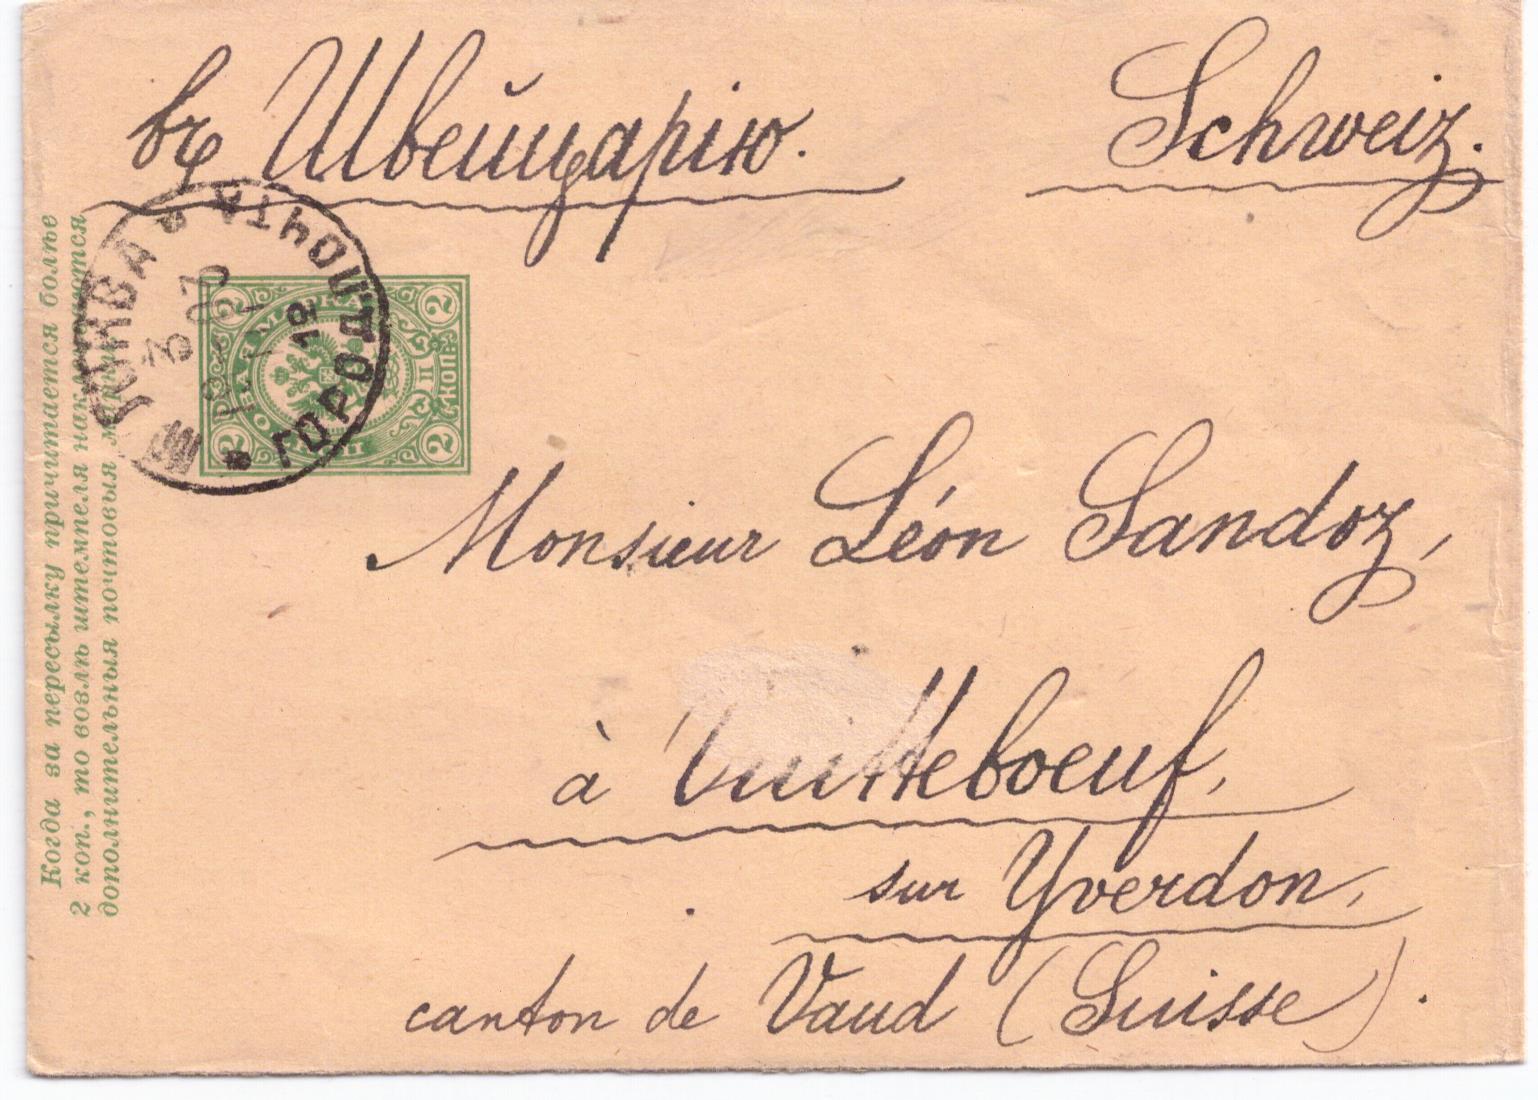 въ Швейцарію. Schweiz.
Monsieur Léon Sandoz,
à Vuitteboeuf,
sur Yverdon,
canton de Vaud (Suisse).
Когда за пересылку причитается болѣе
2 коп., то возлѣ штемпеля
дополнительныя почтовыя
МОСКВА
ГОРОД. ПОЧТА
3
03
12
2 2
2 2
II КОП.